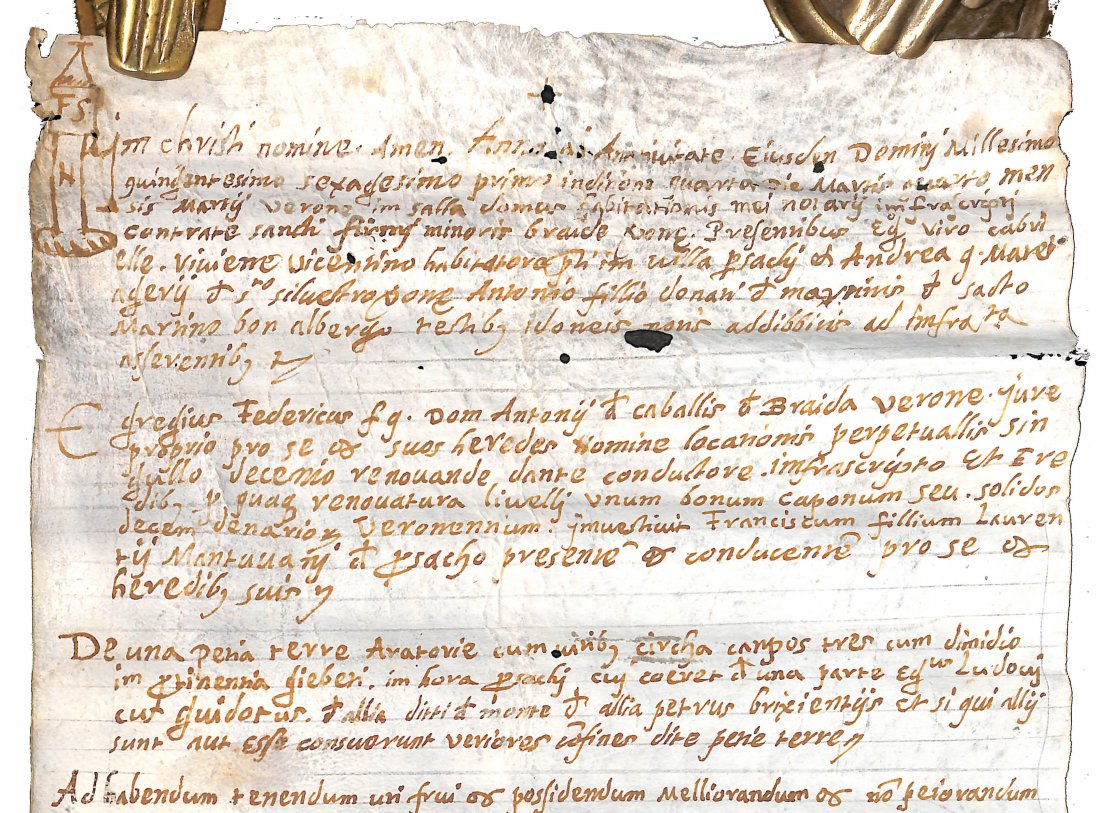 FS
N
Im christi nomine. Amen. Anno a Nativitate. Eiusdm Dominj Millesimo
quingentesimo sexagesimo primo inditione quarta die Martis quarto men
sis Martij verone im salla domus habitationis mei notarij imfrascriptj
contrate sancti firmj minoris braide verone. Presentibus Eg. viro cabri
elle. viviene vicentino habitatore im villa psachj et Andrea q. Mate
agerij d. silvestro Antonio fillio donati d martinis d sacto
Martino bon albergo testibq idoneis addibbitis ad imfrata
asserentibq
Egregius Federicus f q. Dom Antonij d caballis d Braida verone. jure
proprio pro se et suos heredes nomine locationis perpetuallis sin
gullo decenio renovande dante conductore. imfrascripto et Ere
dibq. p quaq renovatura livellj unum bonum caponum seu. solidos
decem denarioq Veromennum. imvestivit Franciscum fillium Lauren
tij Mantuvanj d psacho presente et conducente pro se et
heredibq suis
De una petia terre Aratorie cum circha canpos tres cum dimidio
im ptinentia gieberi. im hora psachj cuj coeret d una parte Egus Ludovj
cus guidotus. d allia ditti d monte d allia petrus brixientijs et si qui allij
sunt aut esse consuerunt veriores cofines dite petie terre
Ad habendum tenendum uti frui et possidendum Melliorandum et no peiorandum